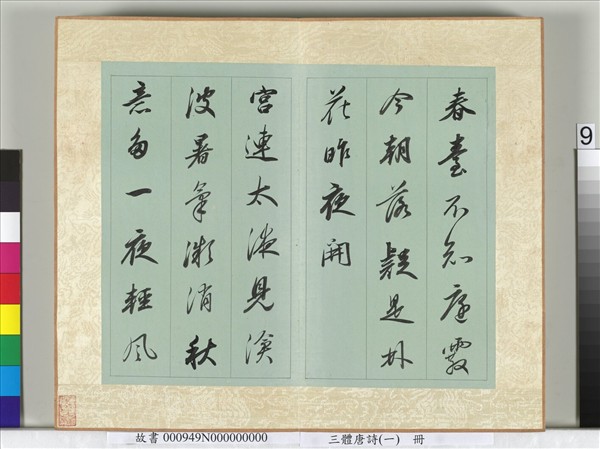 春臺不知庭霰
今朝落疑是林
花昨夜開
宮連太液見滄
波暑氣漸消秋
意多一夜輕風
故書 000949N000000000
三體唐詩(一) 冊
9